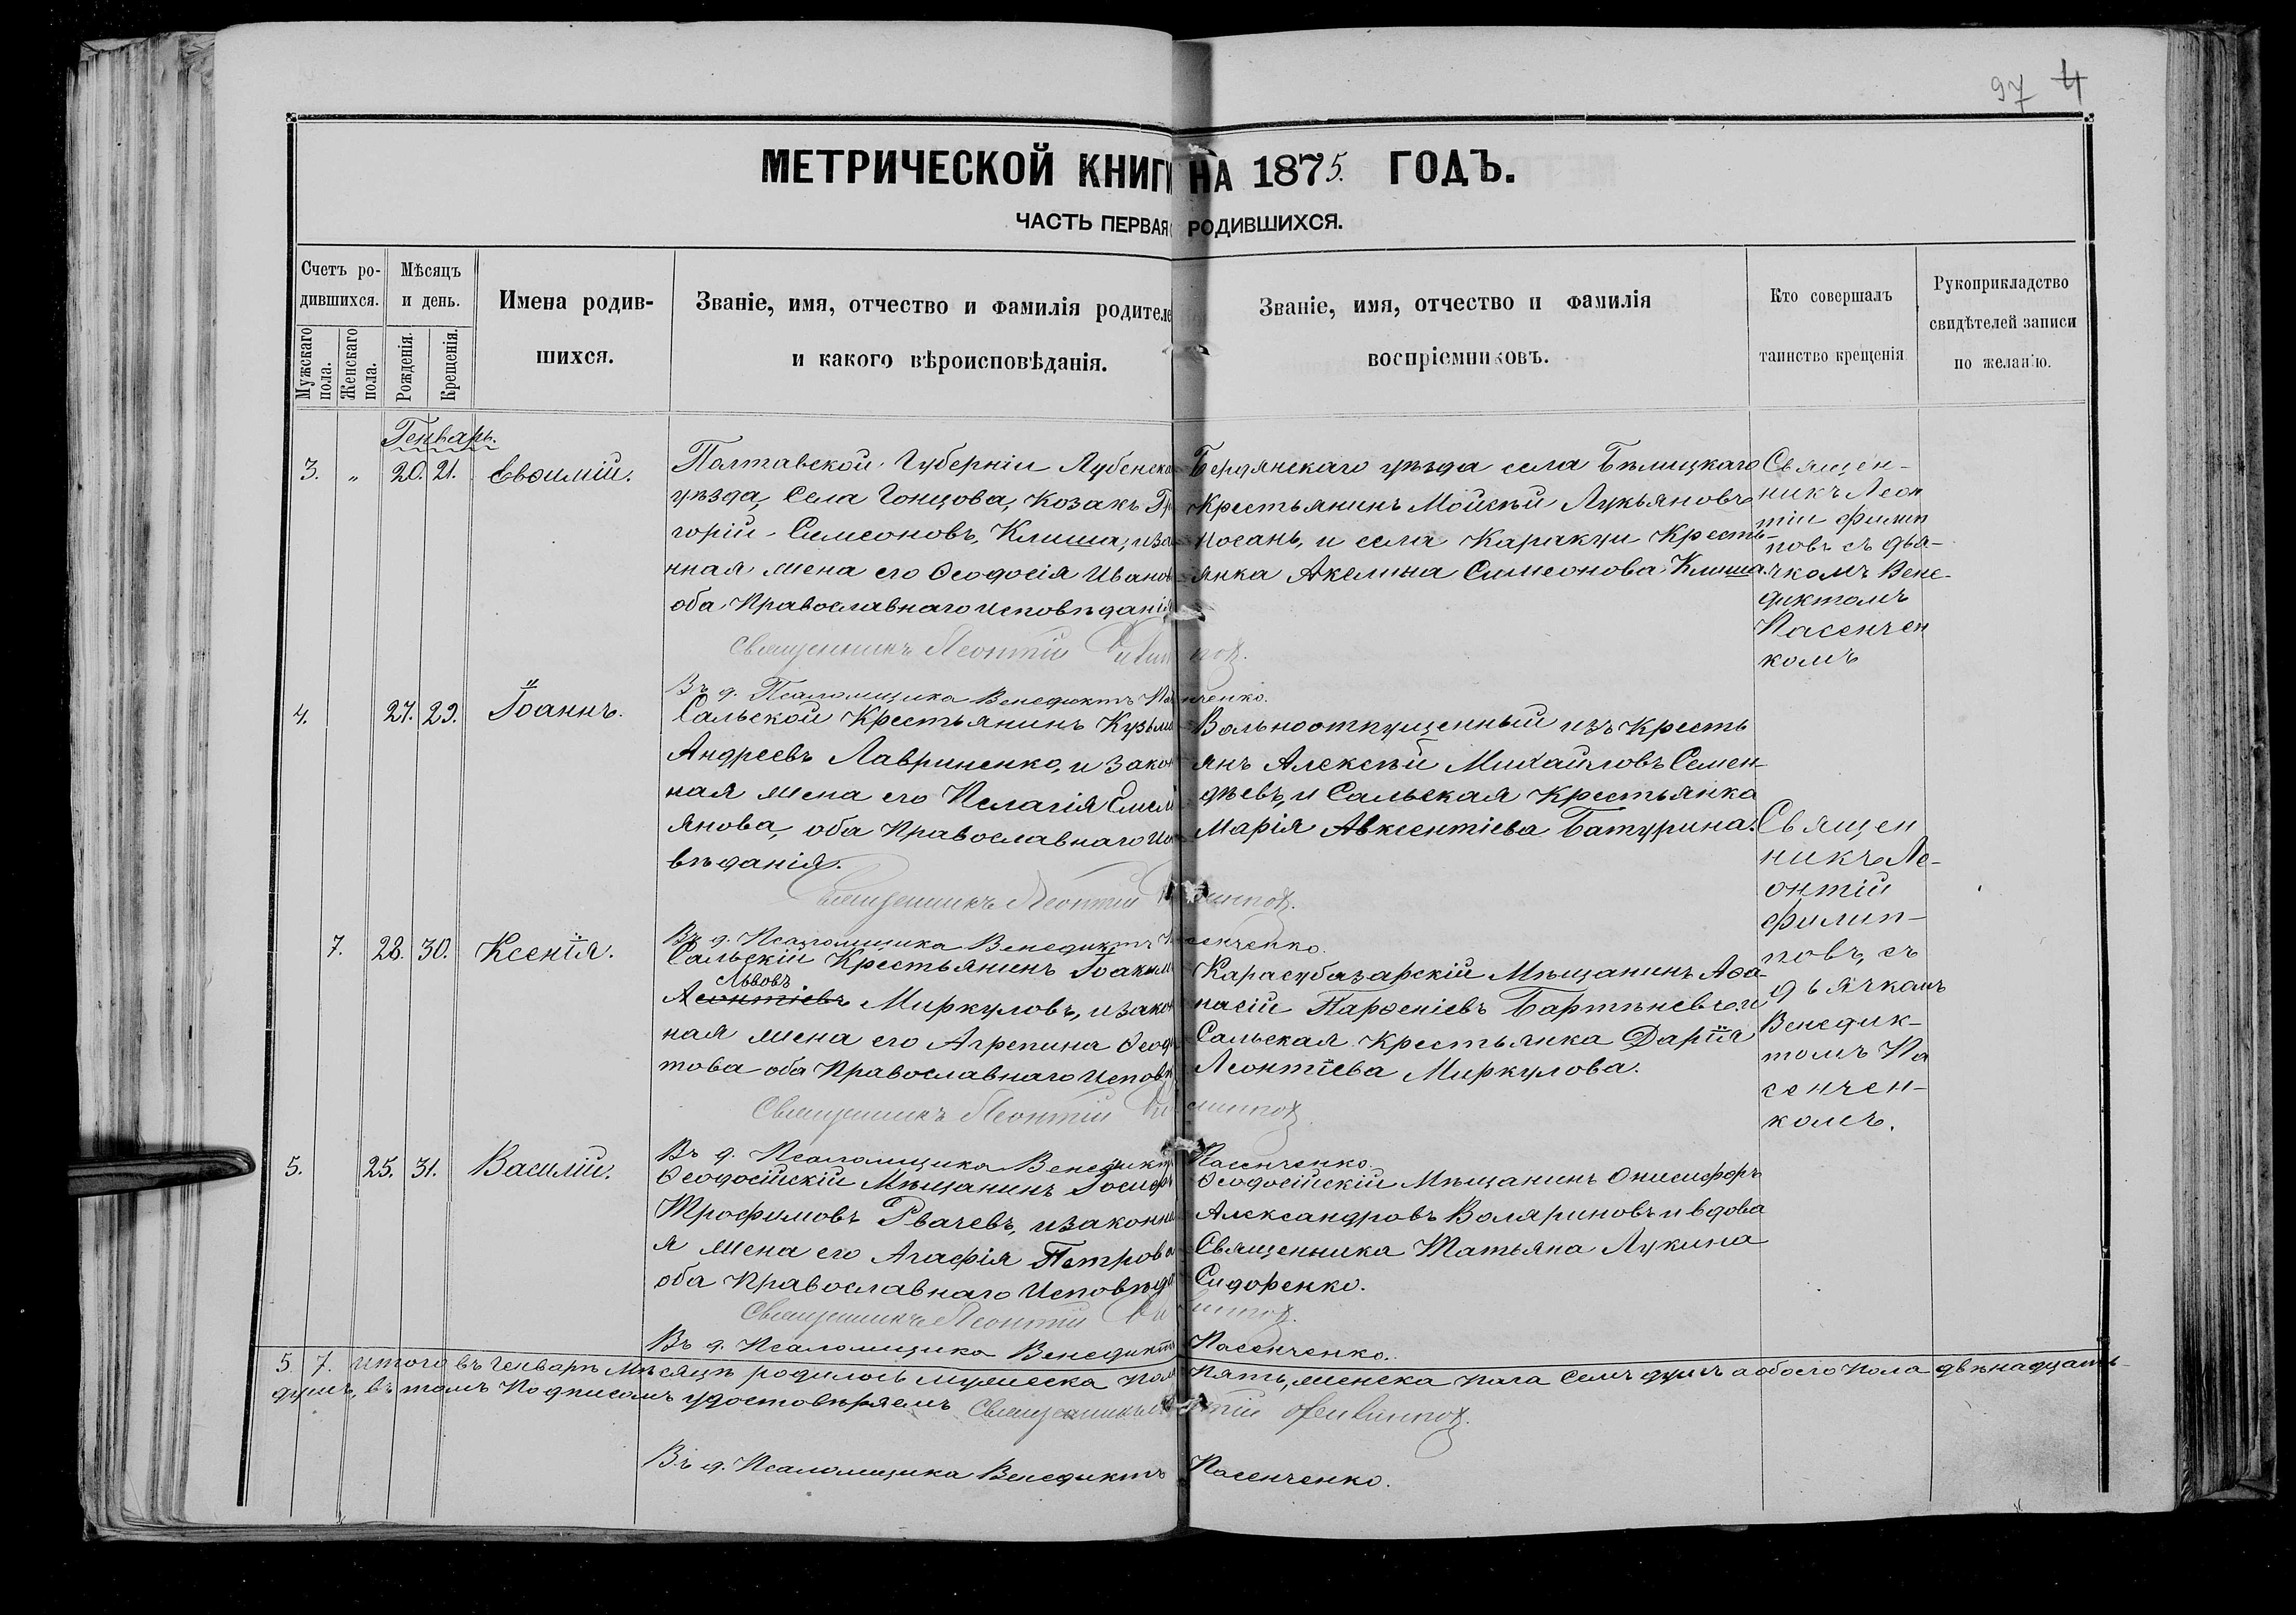 97 4
МЕТРИЧЕСКОЙ КНИГИ НА 1875. ГОДЪ.
ЧАСТЬ ПЕРВАЯ РОДИВШИХСЯ.
Счетъ ро-
дившихся.
Мужскаго пола.
Женскаго пола.
Мѣсяцъ
и день.
Рожденія.
Крещенія.
Имена родив-
шихся.
Званіе, имя, отчество и фамилія родителе
и какого вѣроисповѣданія.
Званіе, имя, отчество и фамилія
воспріемниковъ.
Кто совершалъ
таинство крещенія
Рукоприкладство
свидѣтелей записи
по желанію.
Генварь.
3. „ 20. 21. Евѳимій.
Полтавской Губерніи Лубенска
уѣзда, Села Гонцова, Козакъ Гри
горій Симеоновъ, Клиша, и зак
нная жена его Ѳеодосія Иванов
оба Православнаго исповѣданія
Бердянскаго уѣзда села Бѣлицкаго
Крестьянинъ Мойсѣй Лукьяновъ
Носань, и села Каракуи Кресть-
янка Акелина Симеонова Клиша.
Священ-
никъ Леон
тій Филип
повъ съ дья-
чкомъ Вене-
диктомъ
Пасенчен
комъ
Священникъ Леонтій Филиппов.
Въ д. Псаломщика Венедиктъ Пасенченко.
4. 27. 29. Іоаннъ.
Сальской Крестьянинъ Кузьма
Андреевъ Лавриненко, и закон
ная жена его Пелагія Емель
янова, оба Православнаго Испо
вѣданія.
Вольноотпущенный изъ Кресть
янъ Алексѣй Михайловъ Семен-
дѣевъ, и Сальская Крестьянка
Марія Авксентіева Батурина.
Священ
никъ Ле-
онтій
Филип-
повъ, съ
дьячкомъ
Венедик-
томъ Па
сенчен-
комъ.
Священникъ Леонтій Филиппов.
Въ д. Псаломщика Венедиктъ Пасенченко.
7. 28. 30. Ксенія.
Сальскій Крестьянинъ Іоаким
Львовъ
Леонтіевъ Миркуловъ, и закон
ная жена его Агрепина Ѳеодо
това оба Православнаго Исповѣ
Карасубазарскій Мѣщанинъ Аѳа-
насій Парѳеніевъ Бартѣневъ, и
Сальская Крестьянка Дарія
Леонтіева Миркулова.
Священникъ Леонтій Филиппов
Въ д. Псаломщика Венедиктъ Пасенченко.
5. 25. 31. Василій.
Ѳеодосійскій Мѣщанинъ Іосифъ
Трофимовъ Рвачевъ, и законна
я жена его Агафія Петрова
оба Православнаго Исповѣда
Ѳеодосійскій Мѣщанинъ Онисифоръ
Александровъ Воляриновъ и вдова
Священника Татьяна Лукина
Сидоренко.
Священникъ Леонтій Филиппов.
Въ д. Псаломщика Венедиктъ Пасенченко.
5 7. итого въ Генварѣ Мѣсяцѣ родилось мужеска пола Пять, женска пола Семъ душъ а обоего пола двѣнадцать
душъ, въ томъ Подписомъ удостовѣряемъ Священникъ Леонтій Филиппов.
Въ д. Псаломщика Венедиктъ Пасенченко.